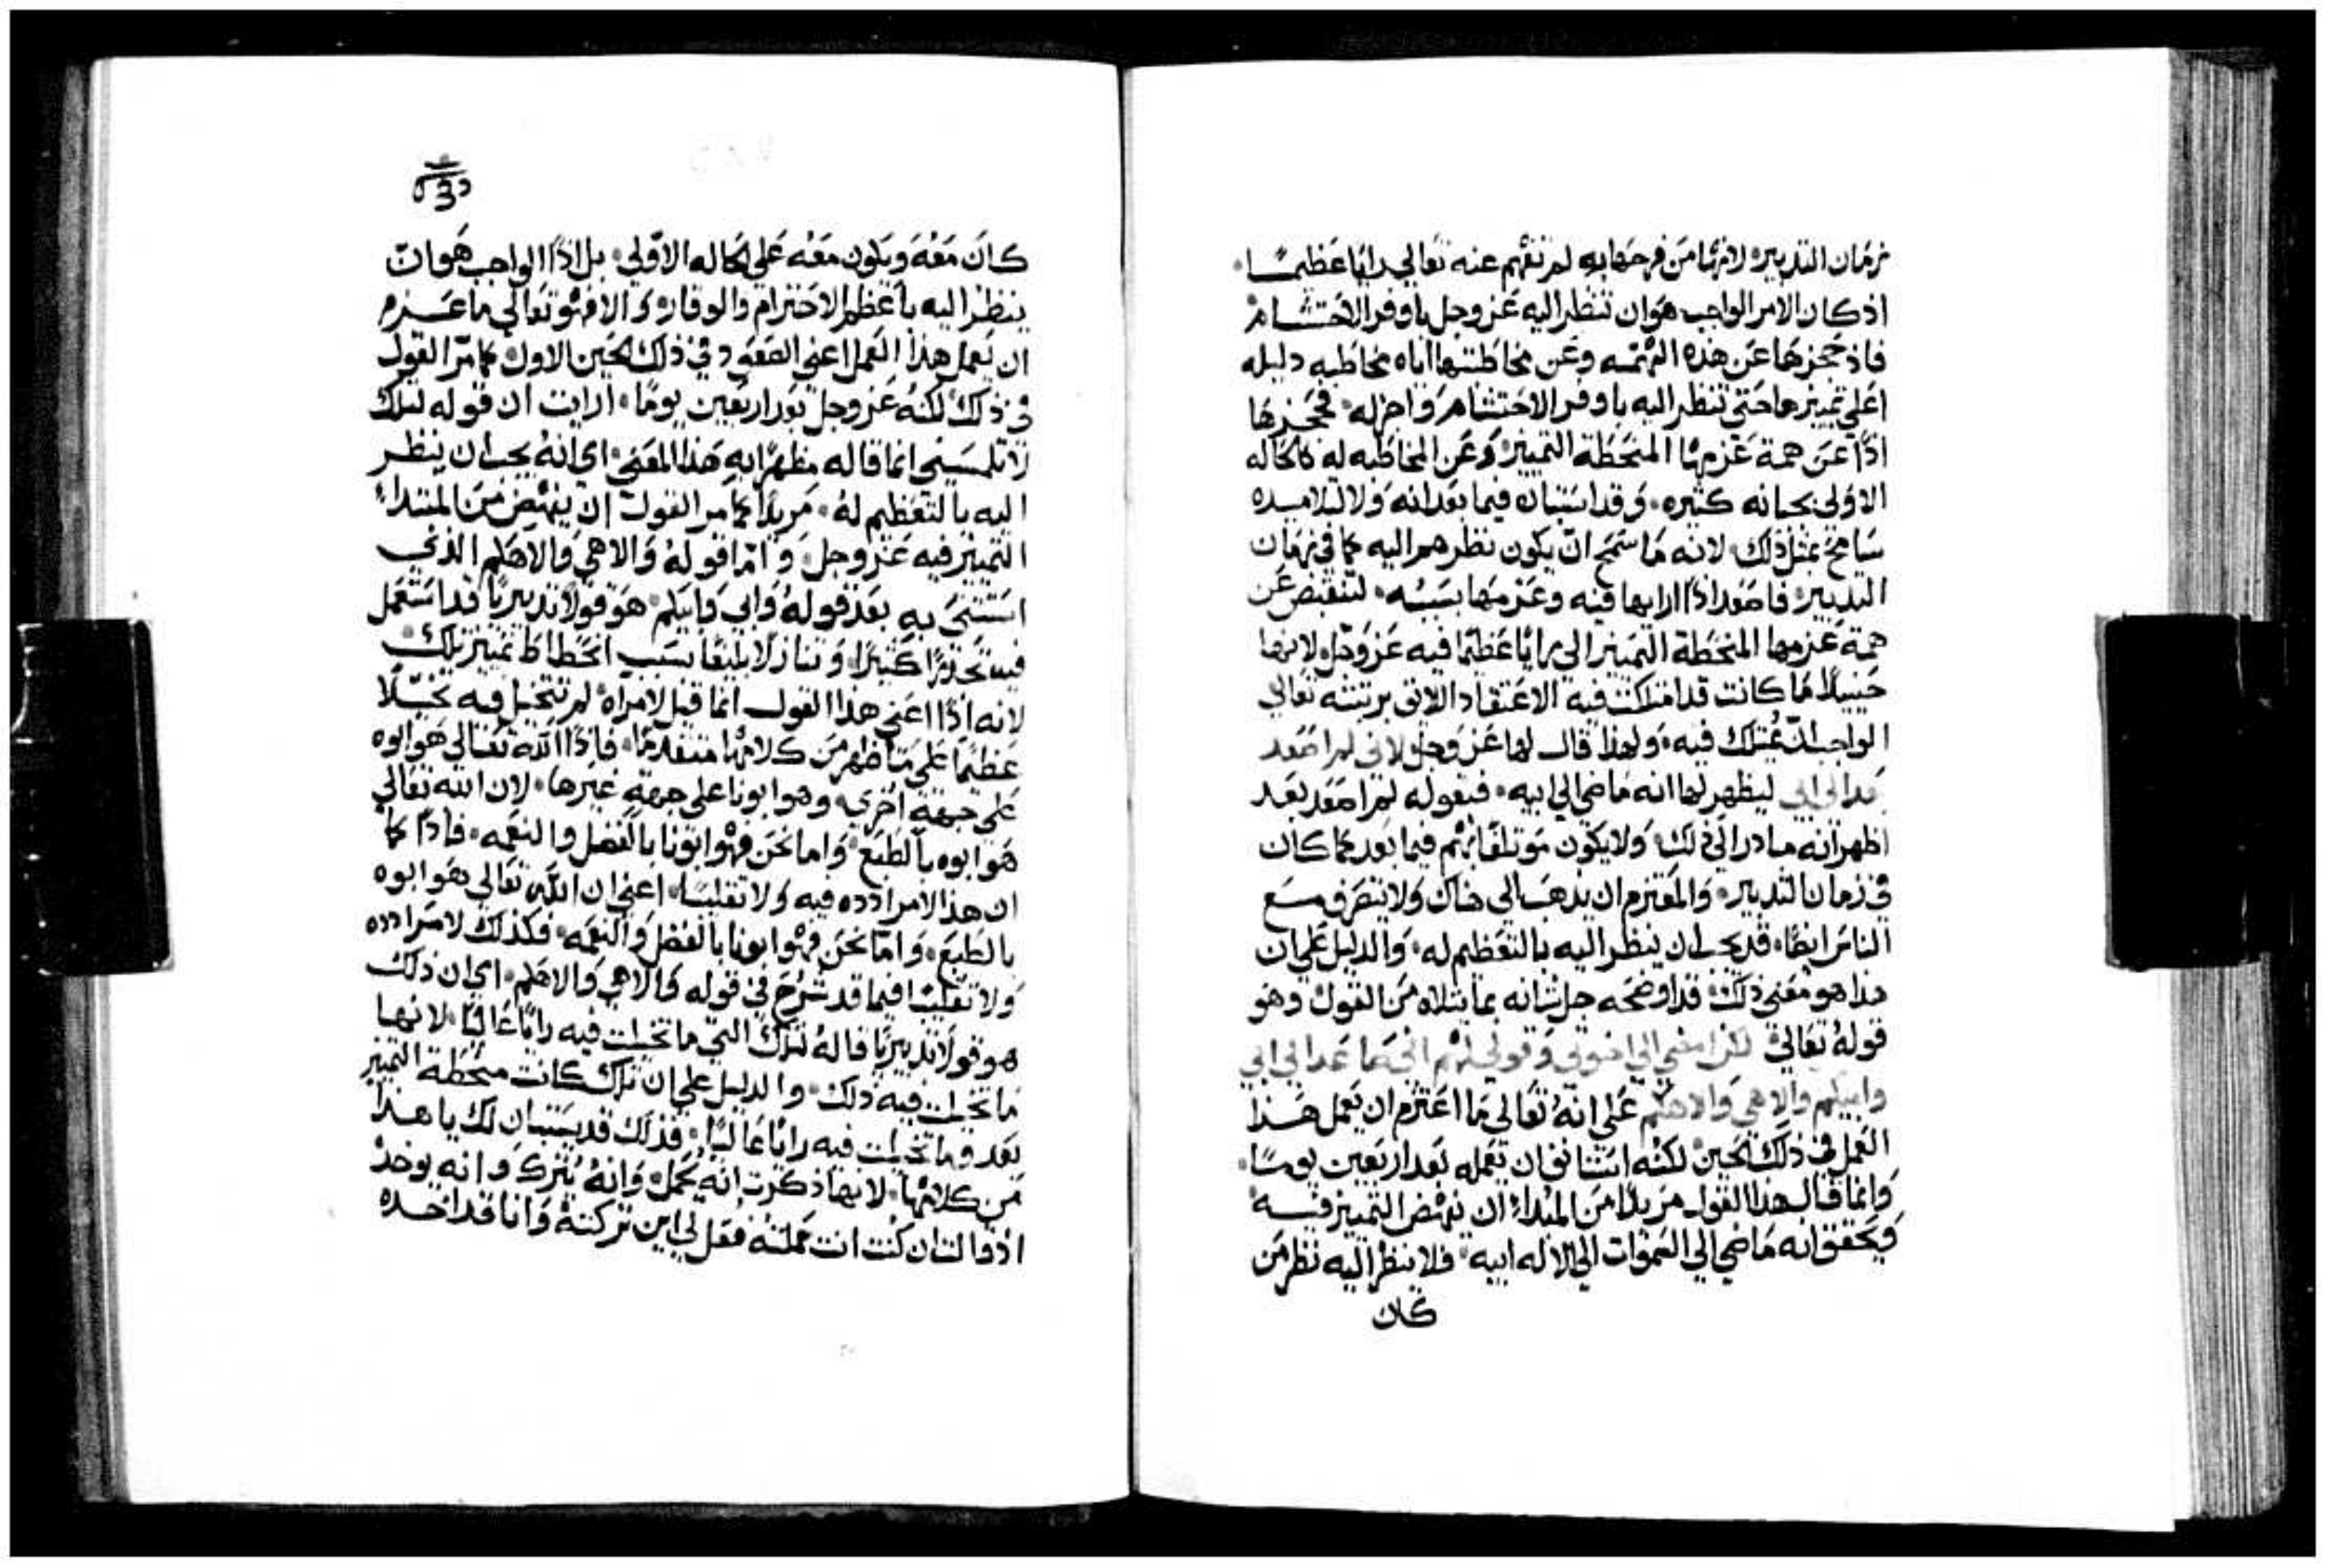 زمان التدبير لانها من فرحها به لم تفهم عنه تعالي رايا عظيما
اذ كان الامر الواجب هو ان تنظر اليه عز وجل باوفر الاحتشام
فاذ حجزها عن هذه الهمه وعن مخاطبتها اياه مخاطبه دليله
اعلي تمييزها حتى تنظر اليه باوفر الاحتشام واجزله فحجزها
اذًا عن همة عزمها المنحطة التمييز وعن المخاطبه له كالحاله
الاولي بحيانه كثيره وقد استبان فيما بعد انه ولا لتلاميده
سامح بمثل ذلك لانه ما سمح ان يكون نظرهم اليه كما في زمان
التدبير فاصعد اذًا ارابها فيه وعزمها بسببه لتنقبض عن
همة عزمها المنحطة التمييز الي رايا عظيما فيه عز وجل لانها
حينيدٍ ما كانت قد امتلكت فيه الاعتقاد اللايق برتبته تعالي
الواجب ان يمتلك فيه ولهذا قال لها عز وجل لاني لم اصعد
بعد الي ابي ليظهر لها انه ماضي الي ابيه فبقوله لم اصعد بعد
اظهر انه مبادر الي ذلك ولا يكون موتلفا بهم فيما بعد كما كان
في زمان التدبير والمعتزم ان يذهب الي هناك ولا يتصرف مع
الناس ايضا قد يجب ان ينظر اليه بالتعظيم له والدليل علي ان
هذا هو معني ذلك قد اوضحه جل شانه بما تلاه من القول وهو
قوله تعالي لكن امضي الي اخوتي وقولي لهم اني صاعد الي ابي
وابيكم والاهي والاهكم علي انه تعالي ما اعتزم ان يعمل هذا
العمل في ذلك الحين لكنه استانف ان يعمله بعد اربعين يومًا
وانما قال هذا القول مريدًا من المبداء ان ينهض التمييز فيه
ويحقق انه ماضي الي السموات الي الاله ابيه فلا ينظر اليه نظر من
كان
كان معه ويكون معه علي الحاله الاولي بل اذًا الواجب هو ان
ينظر اليه باعظم الاحترام والوقار والا فهو تعالي ما عزم
ان يعمل هذا العمل اعني الصعود في ذلك الحين الاول كما مر القول
في ذلك لكنه عز وجل بعد اربعين يومًا ارايت ان قوله لتلك
لا تلمسيني انما قاله مظهرًا به هذا المعني اي انه يجب ان ينظر
اليه بالتعظيم له مريدًا كما مر القول ان ينهض من المبتداء
التمييز فيه عز وجل واما قوله والاهي والاهكم الذي
استثنى به بعد قوله وابي وابيكم هو قولا تدبيريًا قد استعمل
فيه تحذرًا كثيرًا وتنازلا بليغًا بسبب انحطاط تمييز تلك
لانه اذًا اعني هذا القول انما قيل لامراه لم تتخيل فيه تخيلًا
عظيمًا علي ما ظهر من كلامها متقدمًا فاذًا الله تعالي هو ابوه
علي جهة اخري وهو ابونا علي جهة غيرها لان الله تعالي
هو ابوه بالطبع واما نحن فهو ابونا بالفضل والنعمه فاذًا كما
ان هذا الامر اردده فيه ولا تقلبها اعني ان الله تعالي هو ابوه
بالطبع واما نحن فهو ابونا بالفضل والنعمه فكذلك الامر اردده
ولا تقلبها فيما قد شرح في قوله والاهي والاهكم اي ان ذلك
هو قولا تدبيريًا قاله لتلك التي ما تخيلت فيه رايًا عاليًا لانها
ما تخيلت فيه ذلك والدليل علي ان تلك كانت منحطة التمييز
بعد وما تخيلت فيه رايًا عاليًا فذلك قد يستبان لك يا هذا
من كلامها لانها ذكرت انه يحمل وانه يترك وانه يوخذ
اذ قالت ان كنت انت حملته فقل لي اين تركته وانا قد اخده